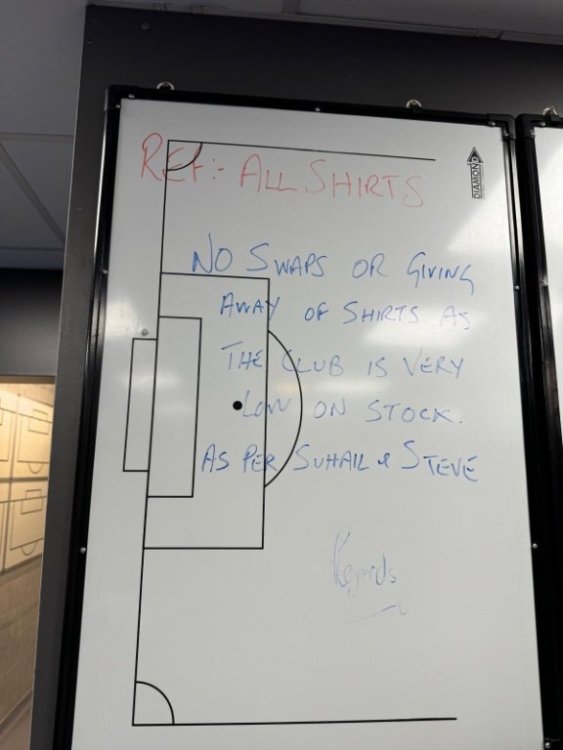 REF:- ALL SHIRTS
DIAMOND
NO SWAPS OR GIVING
AWAY OF SHIRTS AS
THE CLUB IS VERY
LOW ON STOCK.
AS PER SUHAIL & STEVE
Regards